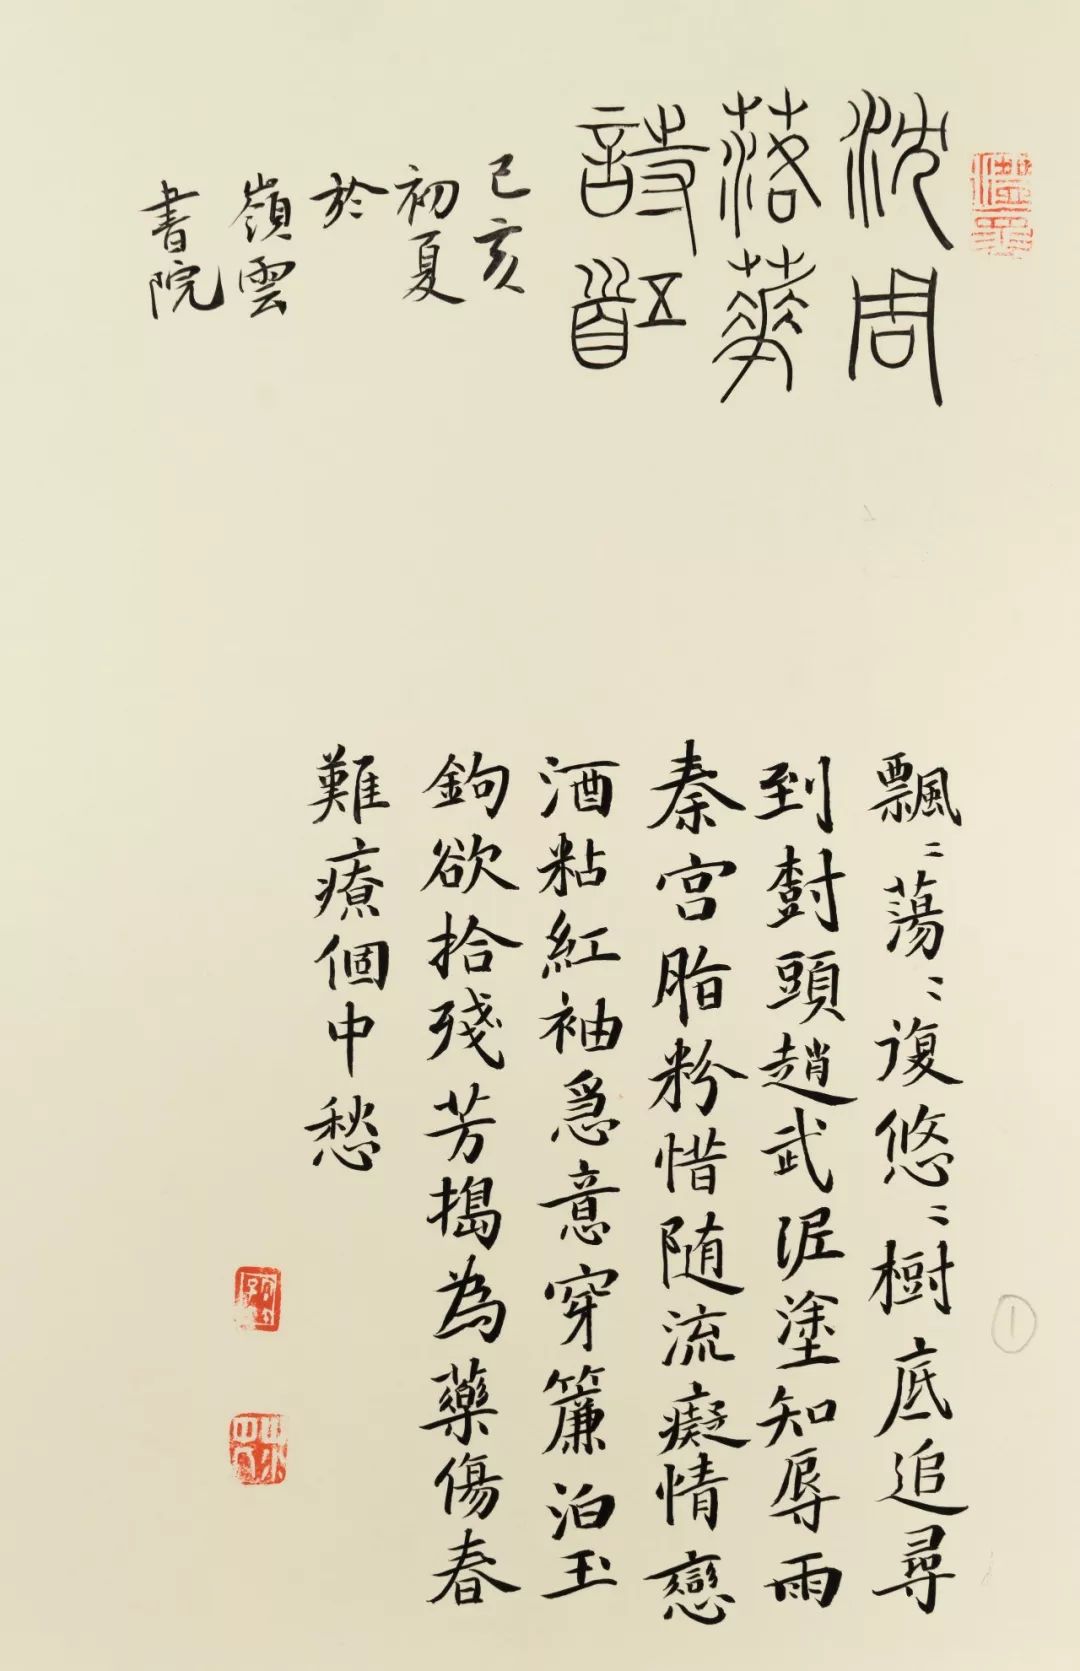 沈周
落華
詩五首
己亥
初夏
於
嶺雲
書院
飄〻蕩〻復悠〻樹底追尋
到尌頭趙武泥塗知辱雨
秦宫脂粉惜随流癡情戀
酒粘紅袖急意穿簾泊玉
鉤欲拾殘芳搗為藥傷春
難療個中愁
①